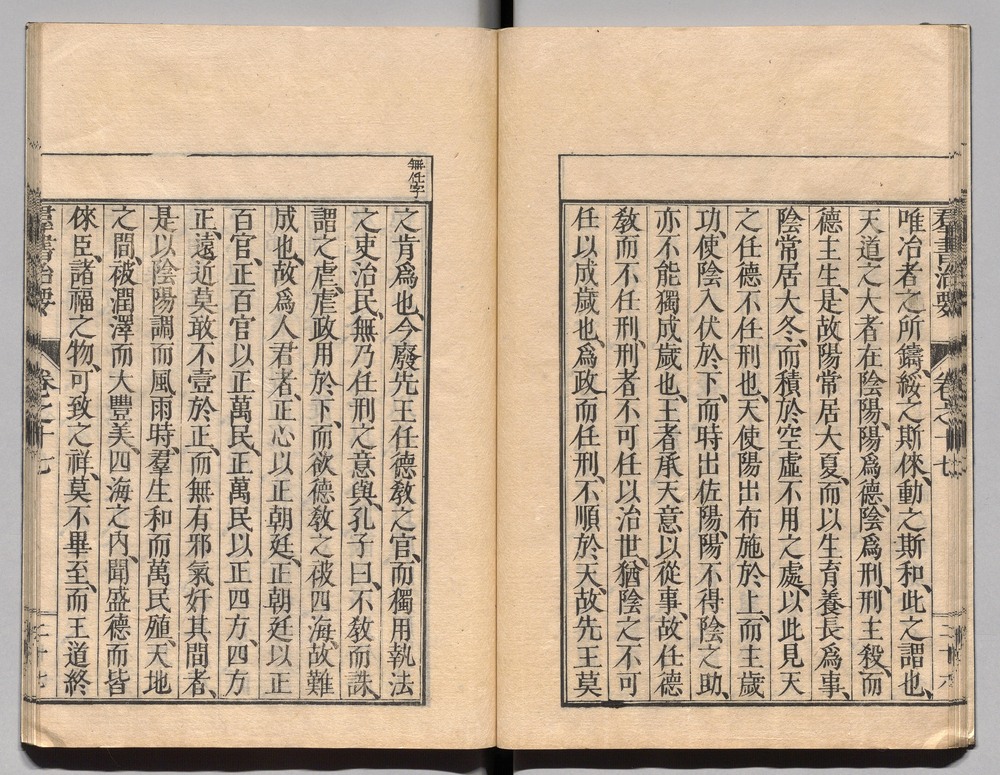 羣書治要 卷之十七
唯冶者之所鑄、綏之斯倈、動之斯和、此之謂也、
天道之大者在陰陽、陽爲德、陰爲刑、刑主殺、而
德主生、是故陽常居大夏、而以生育養長爲事、
陰常居大冬、而積於空虛不用之處、以此見天
之任德不任刑也、天使陽出布施於上、而主歲
功、使陰入伏於下、而時出佐陽、陽不得陰之助、
亦不能獨成歲也、王者承天意以從事、故任德
敎而不任刑、刑者不可任以治世、猶陰之不可
任以成歲也、爲政而任刑、不順於天、故先王莫
無任字
之肯爲也、今廢先王任德敎之官、而獨用執法
之吏治民、無乃任刑之意與、孔子曰、不敎而誅、
謂之虐、虐政用於下、而欲德敎之被四海、故難
成也、故爲人君者、正心以正朝廷、正朝廷以正
百官、正百官以正萬民、正萬民以正四方、四方
正、遠近莫敢不壹於正、而無有邪氣奸其間者、
是以陰陽調而風雨時、羣生和而萬民殖、天地
之間、被潤澤而大豐美、四海之內、聞盛德而皆
倈臣、諸福之物、可致之祥、莫不畢至、而王道終
羣書治要 卷之十七 二十七